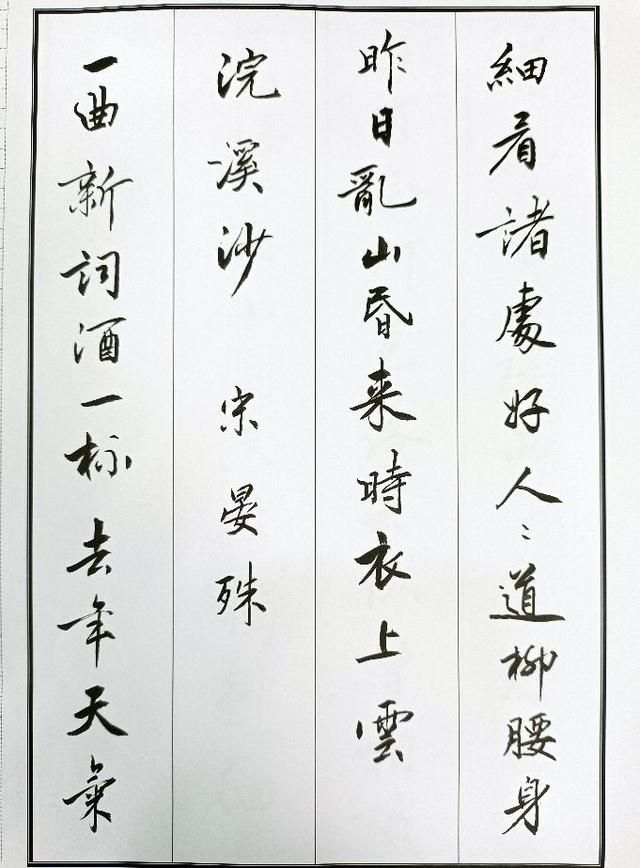 細看諸處好人〻道柳腰身
昨日亂山昏来時衣上雲
浣溪沙 宋晏殊
一曲新詞酒一杯去年天氣